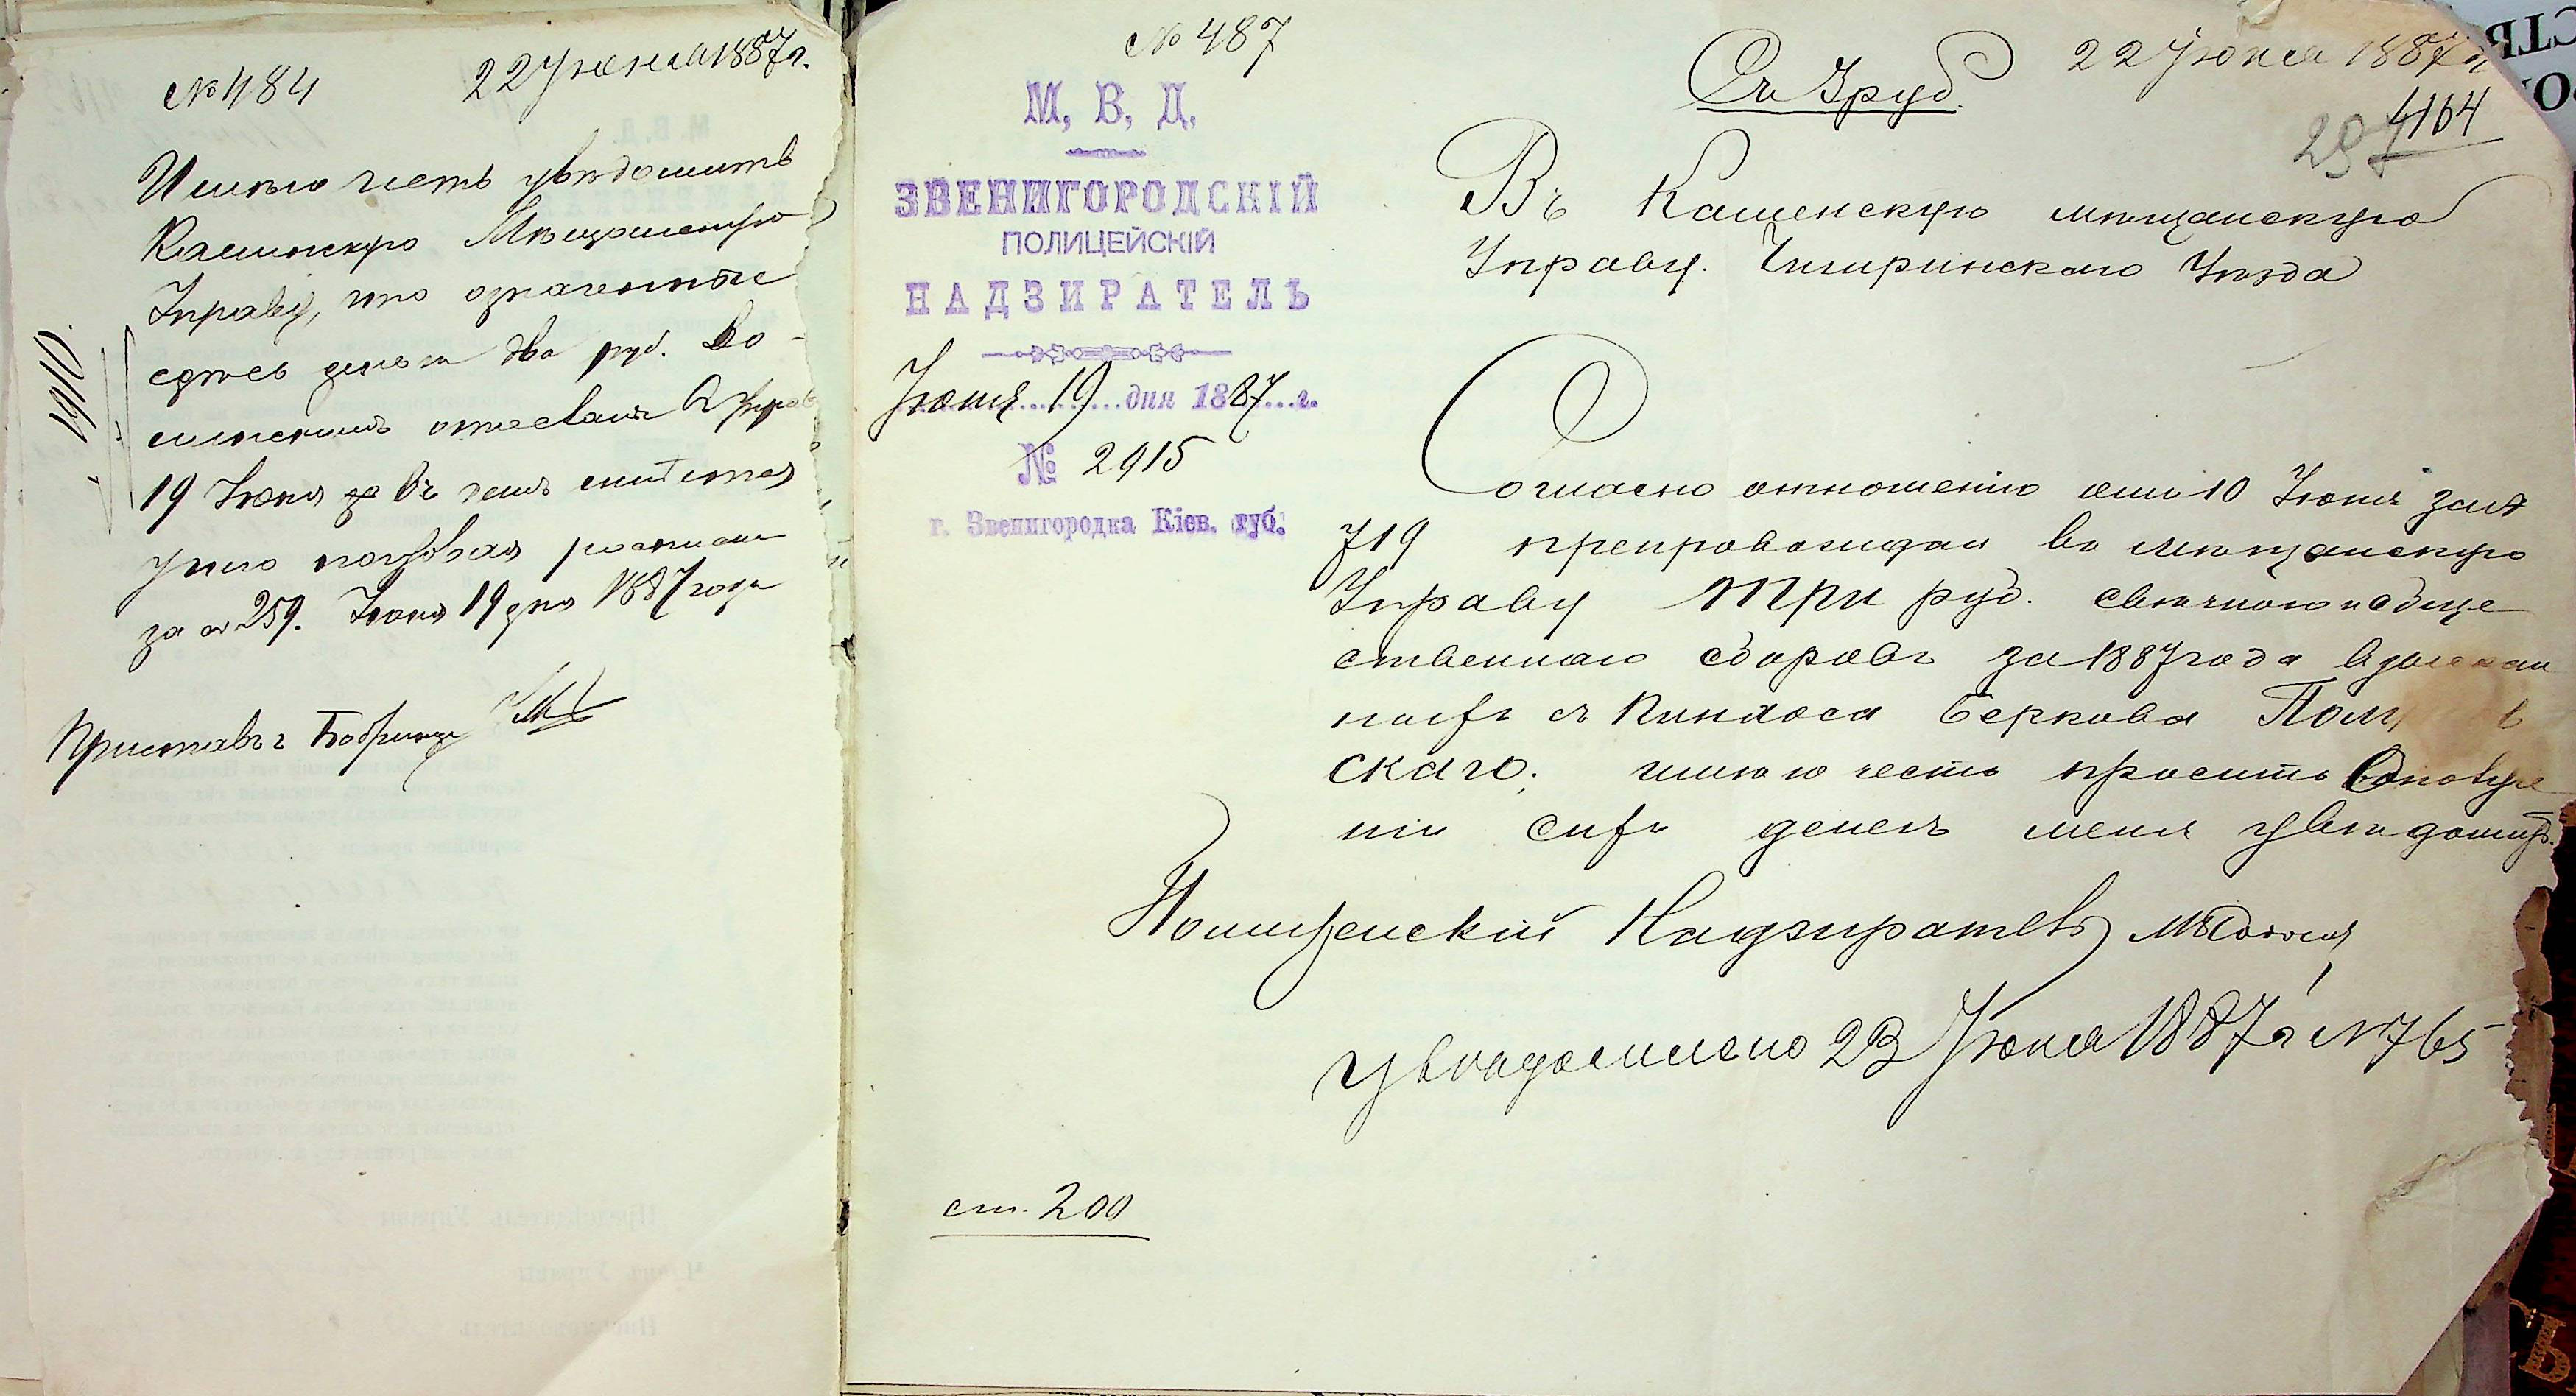 № 484 22 Июня 1887 г.
Имѣю честь увѣдомить
Каменскую Мѣщанскую
Управу, что означенные
здѣсь деньги два руб.
19 Июня
за № 259. Июня 19 дня 1887 года
Приставъ г Бобринца
1910.
№ 487
М. В. Д.
ЗВЕНИГОРОДСКІЙ
ПОЛИЦЕЙСКІЙ
НАДЗИРАТЕЛЬ
Июня 19 дня 1887 г.
№ 2915
г. Звенигородка Кіев. губ.
Съ 3 руб.
22 Июня 1887 г
4164
297
Въ Каменскую мѣщанскую
Управу. Чигиринскаго Уѣзда
Согласно отношенію отъ 10 Июня за №
719 препровождая въ мѣщанскую
Управу три руб. свѣчного и обще
ственнаго сборовъ за 1887 года взыскан
ныхъ съ Пинхоса Беркова
скаго, имѣю честь просить о получе
ніи сихъ денегъ меня увѣдомить.
Полицейскій Надзиратель
Увѣдомлено 23 Июня 1887 г № 765
ст. 200